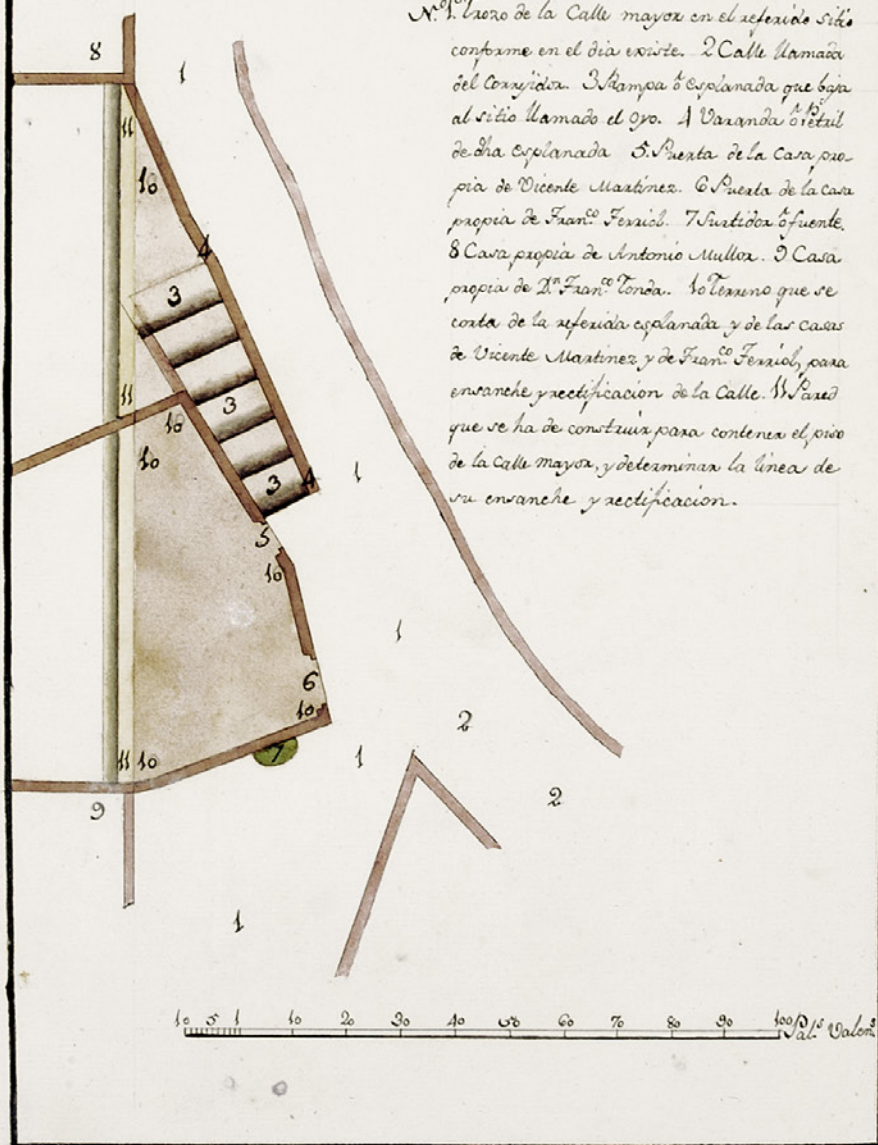 N.º 1.º Trozo de la Calle mayor en el referido sitio
conforme en el dia existe. 2 Calle llamada
del Correjidor. 3 Rampa ô esplanada que baja
al sitio llamado el oyo. 4 Varanda ô Petril
de dha esplanada 5. Puerta de la Casa pro-
pia de Vicente Martinez. 6 Puerta de la casa
propia de Fran.co Ferriol. 7 Surtidor ô fuente.
8 Casa propia de Antonio Mullor. 9 Casa
propia de D.n Fran.co Tonda. 10 Terreno que se
corta de la referida esplanada y de las casas
de Vicente Martinez y de Fran.co Ferriol, para
ensanche y rectificacion de la Calle. 11 Pared
que se ha de construir para contener el piso
de la Calle mayor, y determinar la linea de
su ensanche y rectificacion.
8
1
11
10
4
3
11
3
10
10
3
4
1
5
10
1
6
10
2
7
1
11
10
2
9
1
10 5 1 10 20 30 40 50 60 70 80 90 100 Pal.s Valen.s